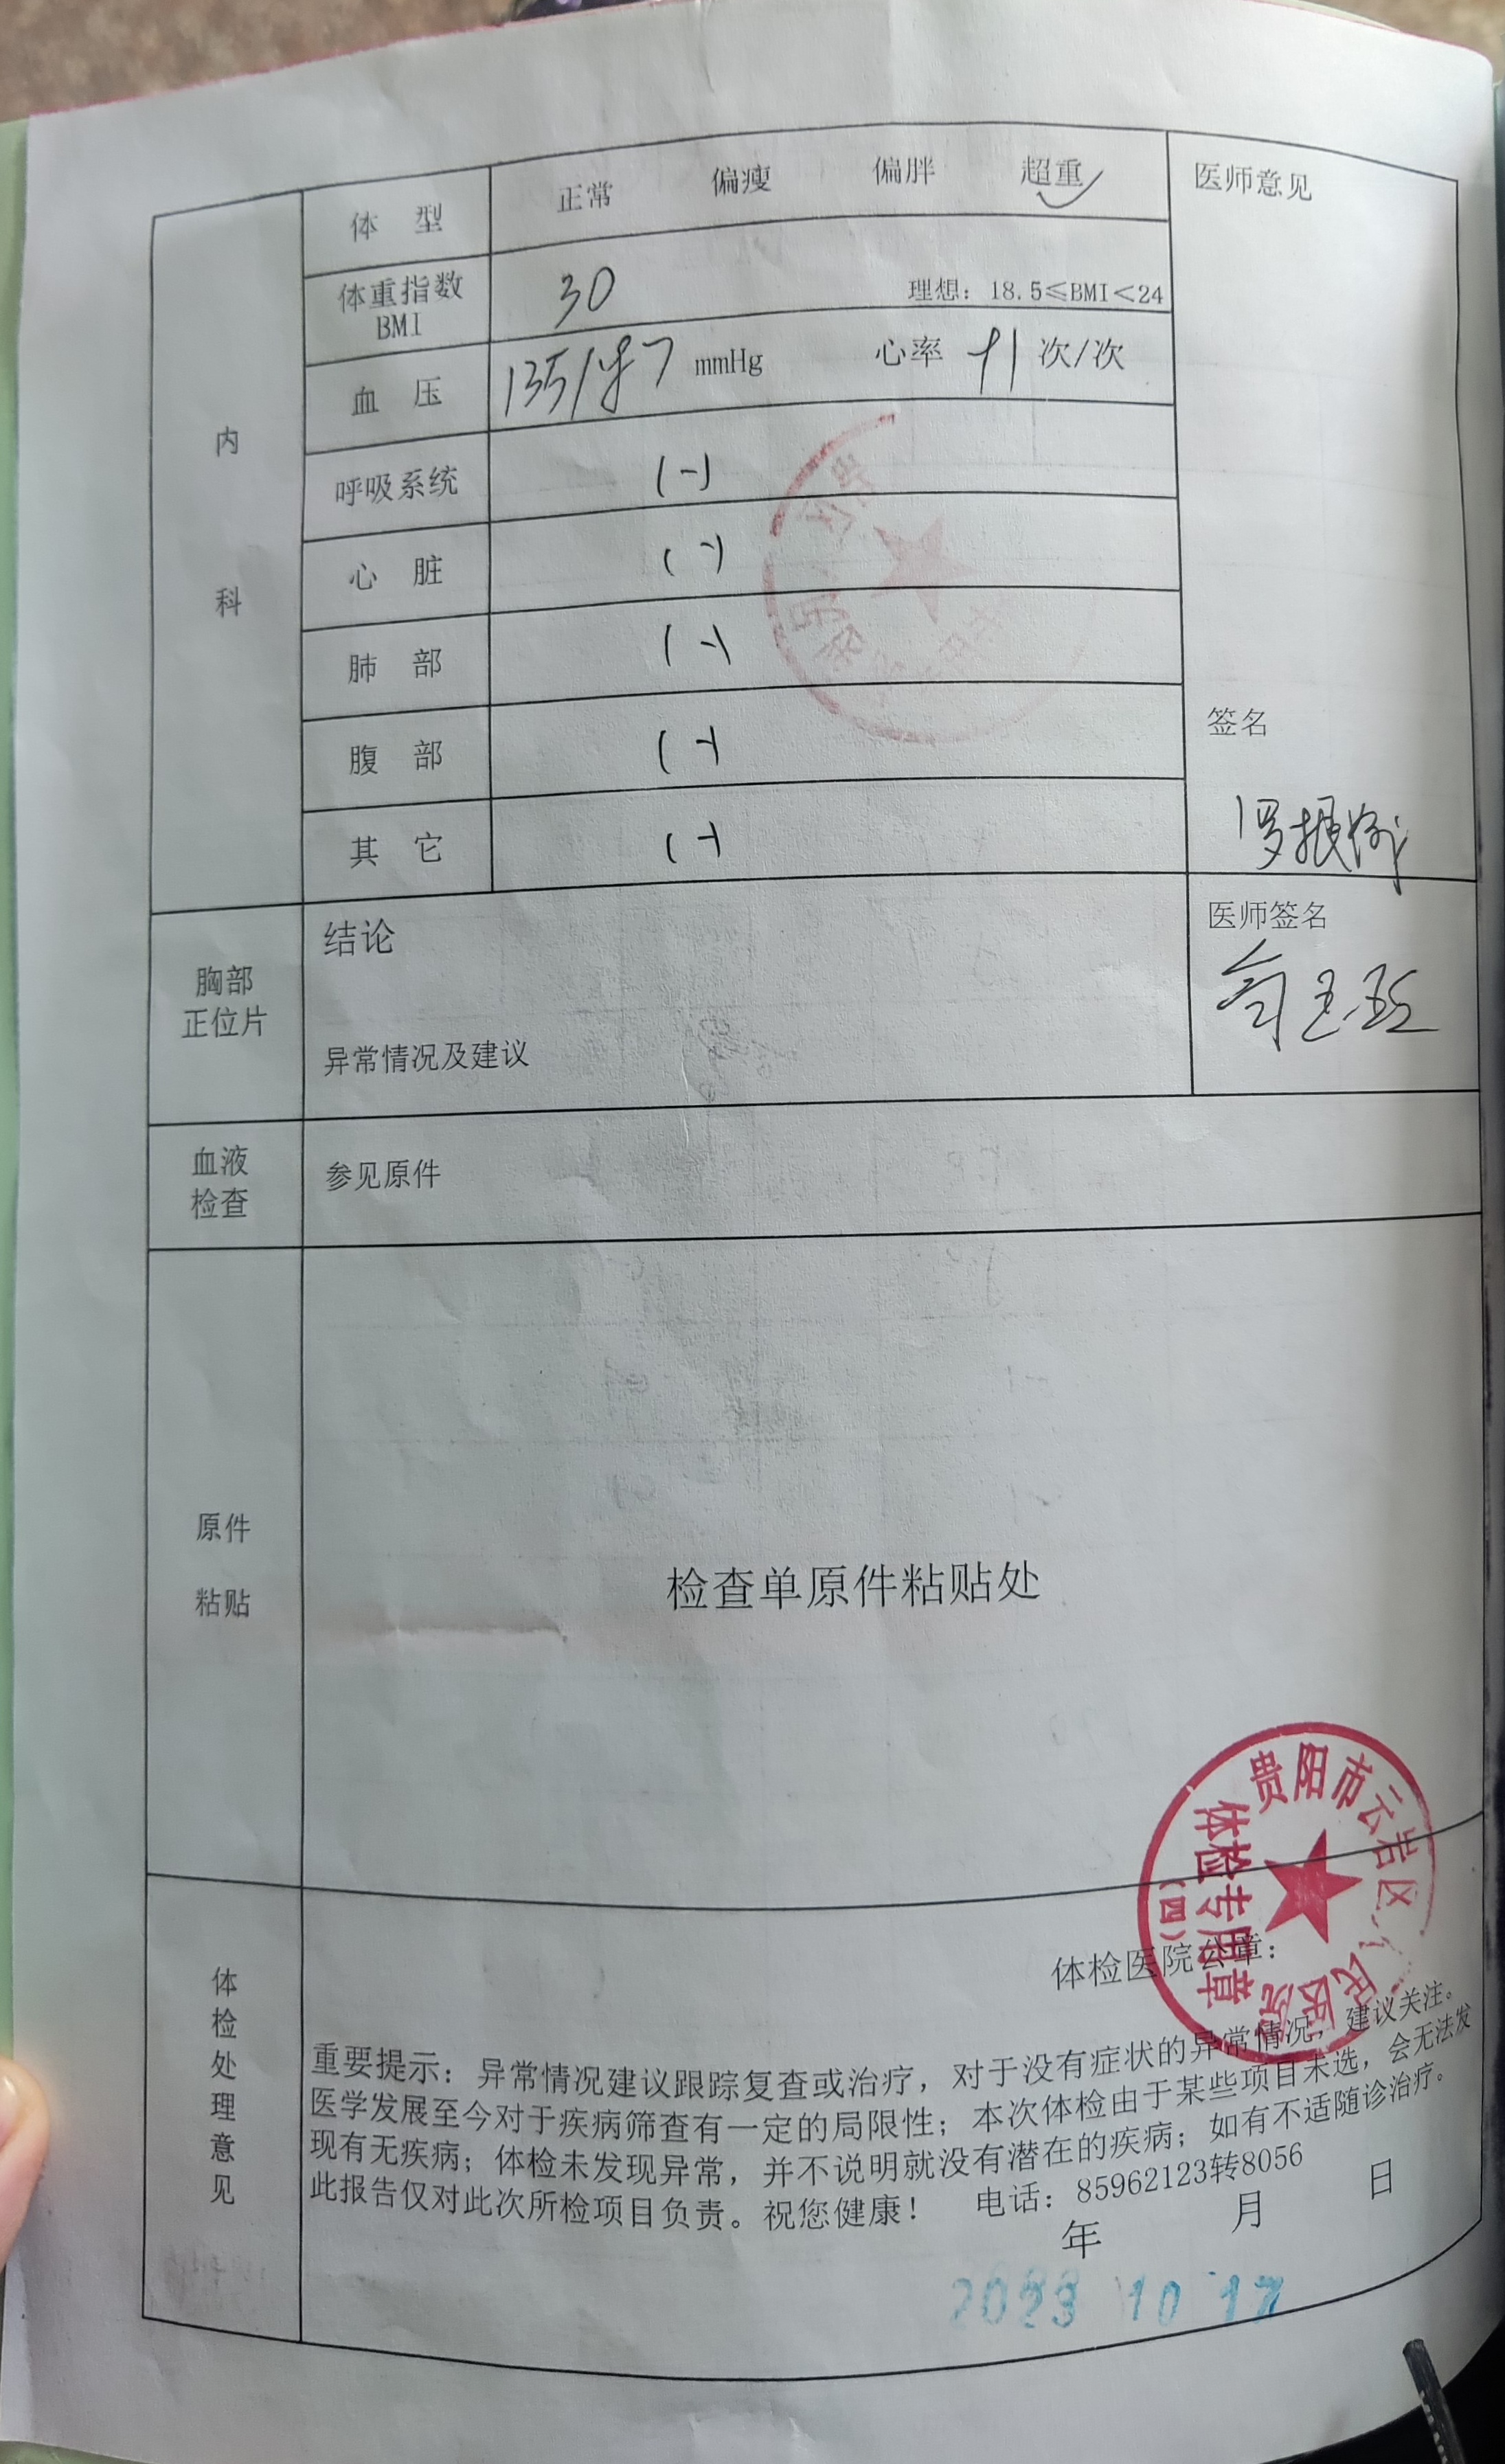 体 型 正常 偏瘦 偏胖 超重 医师意见
体重指数
BMI
30 理想：18.5≤BMI＜24
血 压 135/97 mmHg 心率 91 次/次
呼吸系统 (-)
心 脏 (-)
肺 部 (-)
腹 部 (-)
其 它 (-)
内
科
签名
结论
医师签名
胸部
正位片
异常情况及建议
血液
检查
参见原件
原件
粘贴
检查单原件粘贴处
贵阳市云岩区人民医院
体检专用章
(四)
体检医院公章：
体
检
处
理
意
见
重要提示：异常情况建议跟踪复查或治疗，对于没有症状的异常情况，建议关注。
医学发展至今对于疾病筛查有一定的局限性；本次体检由于某些项目未选，会无法发
现有无疾病；体检未发现异常，并不说明就没有潜在的疾病；如有不适随诊治疗。
此报告仅对此次所检项目负责。祝您健康！ 电话：85962123转8056
年 月 日
2023 10 17